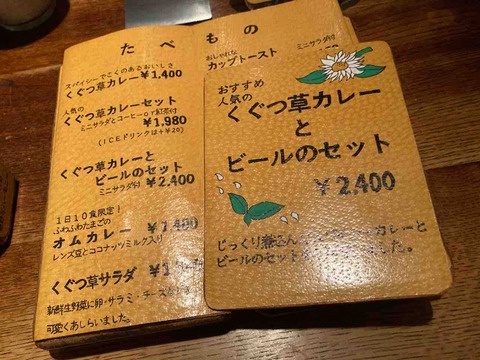 たべもの
スパイシーでこくのあるおいしさ
くぐつ草カレー ¥1,400
人気の
くぐつ草カレーセット
ミニサラダとコーヒーor紅茶付
¥1,980
(ICEドリンクは+¥20)
くぐつ草カレーと
ビールのセット
ミニサラダ付 ¥2,400
1日10食限定!
ふわふわたまごの
オムカレー ¥1,400
レンズ豆とココナッツミルク入り
くぐつ草サラダ ¥1
新鮮生野菜に卵・サラミ・チーズ
可愛くあしらいました。
おしゃれな
カップトースト
ミニサラダ付
おすすめ
人気の
くぐつ草カレー
と
ビールのセット
¥2,400
じっくり煮込ん カレーと
ビールのセット ました。